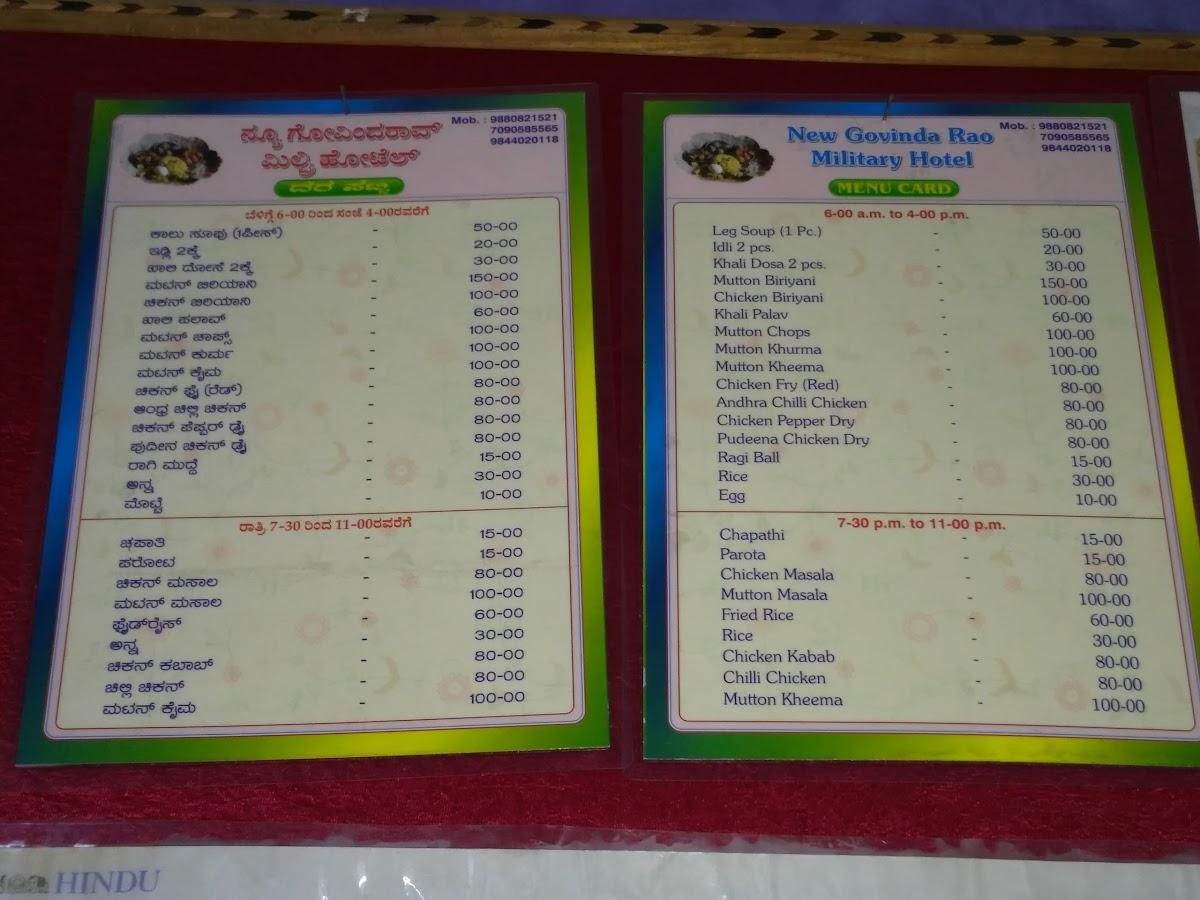 ನ್ಯೂ ಗೋವಿಂದರಾವ್
ಮಿಲ್ಟ್ರಿ ಹೋಟೆಲ್
Mob. : 9880821521
7090585565
9844020118
ದರ ಪಟ್ಟಿ
ಬೆಳಿಗ್ಗೆ 6-00 ರಿಂದ ಸಂಜೆ 4-00ರವರೆಗೆ
ಕಾಲು ಸೂಪು (1ಪೀಸ್) - 50-00
ಇಡ್ಲಿ 2ಕ್ಕೆ - 20-00
ಖಾಲಿ ದೋಸೆ 2ಕ್ಕೆ - 30-00
ಮಟನ್ ಬಿರಿಯಾನಿ - 150-00
ಚಿಕನ್ ಬಿರಿಯಾನಿ - 100-00
ಖಾಲಿ ಪಲಾವ್ - 60-00
ಮಟನ್ ಚಾಪ್ಸ್ - 100-00
ಮಟನ್ ಕುರ್ಮ - 100-00
ಮಟನ್ ಕೈಮ - 100-00
ಚಿಕನ್ ಫ್ರೈ (ರೆಡ್) - 80-00
ಆಂಧ್ರ ಚಿಲ್ಲಿ ಚಿಕನ್ - 80-00
ಚಿಕನ್ ಪೆಪ್ಪರ್ ಡ್ರೈ - 80-00
ಪುದೀನ ಚಿಕನ್ ಡ್ರೈ - 80-00
ರಾಗಿ ಮುದ್ದೆ - 15-00
ಅನ್ನ - 30-00
ಮೊಟ್ಟೆ - 10-00
ರಾತ್ರಿ 7-30 ರಿಂದ 11-00ರವರೆಗೆ
ಚಪಾತಿ - 15-00
ಪರೋಟ - 15-00
ಚಿಕನ್ ಮಸಾಲ - 80-00
ಮಟನ್ ಮಸಾಲ - 100-00
ಫ್ರೈಡ್‌ರೈಸ್ - 60-00
ಅನ್ನ - 30-00
ಚಿಕನ್ ಕಬಾಬ್ - 80-00
ಚಿಲ್ಲಿ ಚಿಕನ್ - 80-00
ಮಟನ್ ಕೈಮ - 100-00
New Govinda Rao
Military Hotel
Mob. : 9880821521
7090585565
9844020118
MENU CARD
6-00 a.m. to 4-00 p.m.
Leg Soup (1 Pc.) - 50-00
Idli 2 pcs. - 20-00
Khali Dosa 2 pcs. - 30-00
Mutton Biriyani - 150-00
Chicken Biriyani - 100-00
Khali Palav - 60-00
Mutton Chops - 100-00
Mutton Khurma - 100-00
Mutton Kheema - 100-00
Chicken Fry (Red) - 80-00
Andhra Chilli Chicken - 80-00
Chicken Pepper Dry - 80-00
Pudeena Chicken Dry - 80-00
Ragi Ball - 15-00
Rice - 30-00
Egg - 10-00
7-30 p.m. to 11-00 p.m.
Chapathi - 15-00
Parota - 15-00
Chicken Masala - 80-00
Mutton Masala - 100-00
Fried Rice - 60-00
Rice - 30-00
Chicken Kabab - 80-00
Chilli Chicken - 80-00
Mutton Kheema - 100-00
HINDU